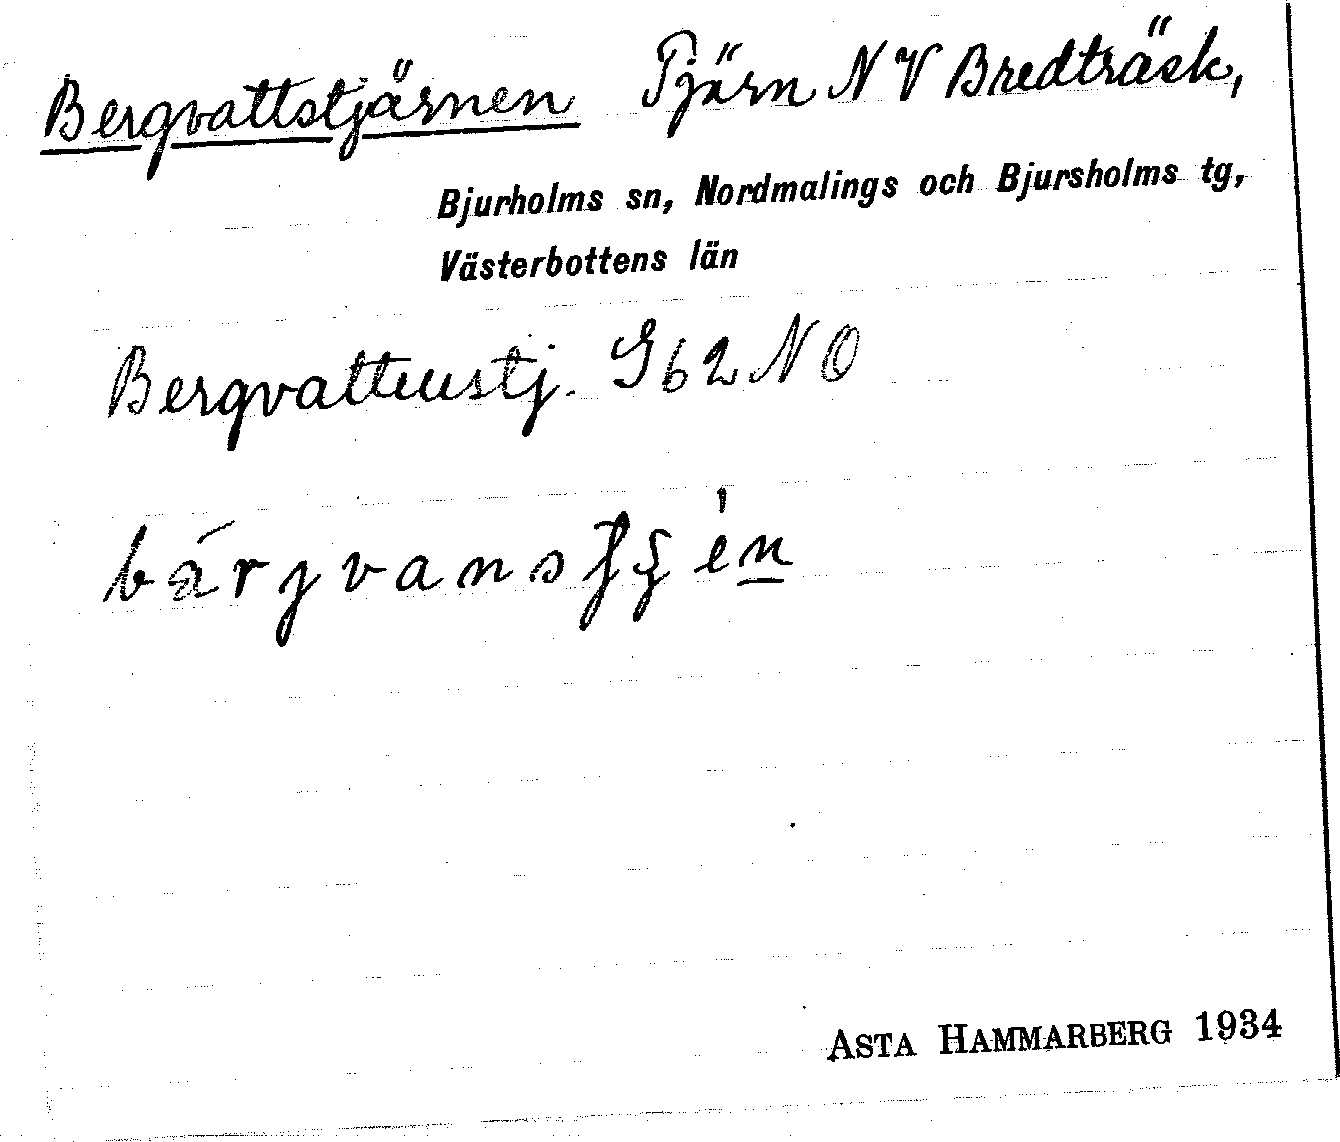 Bergvattstjärnen Tjärn NV Bredträsk,
Bjurholms sn, Nordmalings och Bjursholms tg,
Västerbottens län
Bergvattenstj. G62NO
ASTA HAMMARBERG 1934